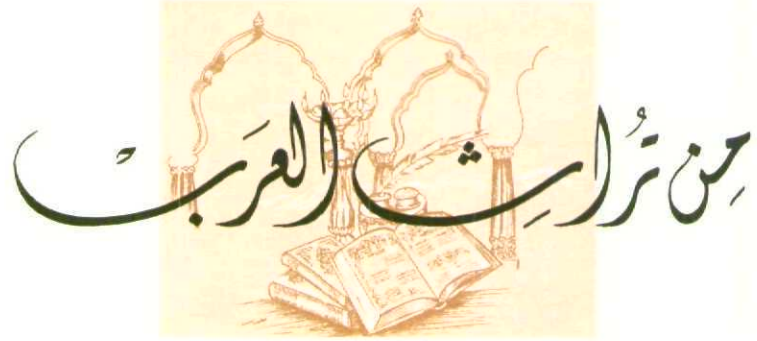 مِن تُراثِ العَربْ